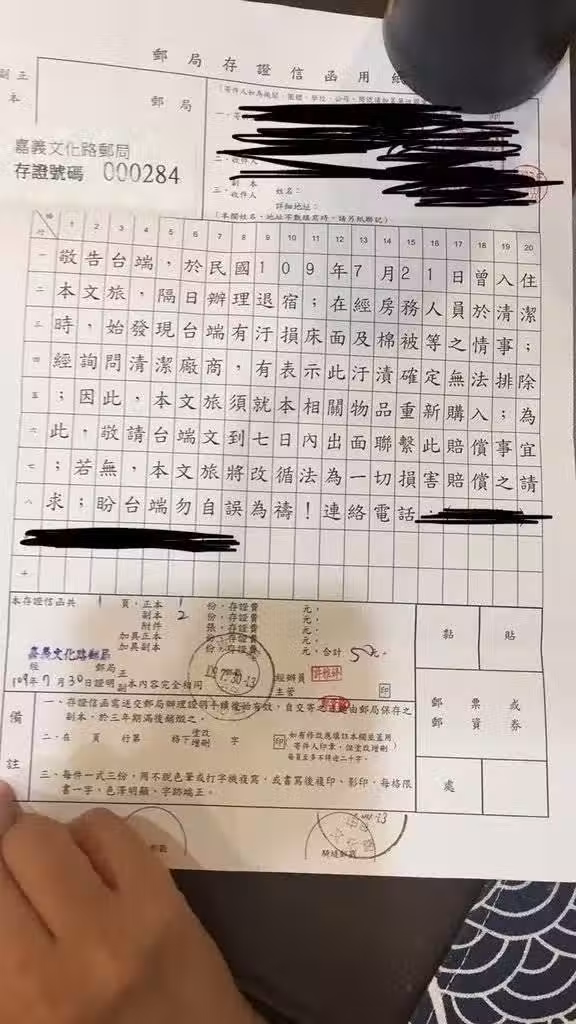 郵局存證信函用
副 正
本
郵局
嘉義文化路郵局
存證號碼 000284
(寄件人如為機關、團體、學校、公司
一、寄
二、收件人
三、副本收件人
姓名：
詳細地址：
(本欄姓名、地址不敷填寫時，請另紙聯記)
格行 1 2 3 4 5 6 7 8 9 10 11 12 13 14 15 16 17 18 19 20
一 敬告台端，於民國109年7月21日曾入住
二 本文旅，隔日辦理退宿；在經房務人員於清潔
三 時，始發現台端有汙損床面及棉被等之情事；
四 經詢問清潔廠商，有表示此汙漬確定無法排除
五 ；因此，本文旅須就本相關物品重新購入；為
六 此，敬請台端文到七日內出面聯繫此賠償事宜
七 ；若無，本文旅將改循法為一切損害賠償之請
八 求；盼台端勿自誤為禱！連絡電話
十
本存證信函共 1 頁，正本 份，存證費 元，
副本 2 份，存證費 元，
附件 張，存證費 元，
加具正本 份，存證費 元，
加具副本 份，存證費 元，合計 50元。
嘉義文化路郵局
經 郵局
109年7月30日證明 正副 本內容完全相同
經辦員
主管
印
黏 貼
郵票或
郵資券
處
備
註
一、存證信函需送交郵局辦理證明手續後始有效，自交寄之日起由郵局保存之
副本，於三年期滿後銷燬之。
二、在 頁 行第 格下 塗改增刪 字 印 (如有修改應填註本欄並蓋用
寄件人印章，但塗改增刪)
每頁至多不得逾二十字。
三、每件一式三份，用不脫色筆或打字機複寫，或書寫後複印、影印，每格限
書一字，色澤明顯、字跡端正。
騎縫郵戳